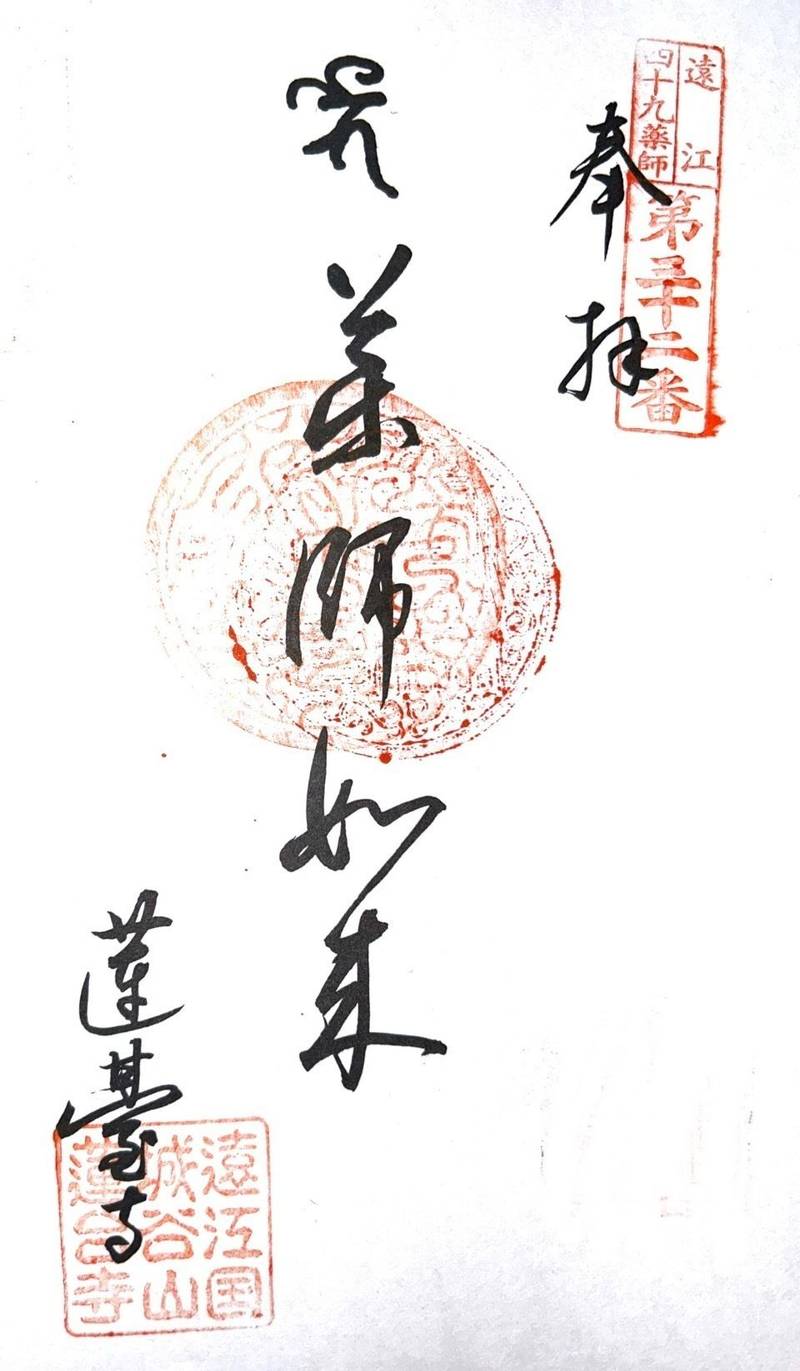 遠江
四十九薬師
第三十二番
奉拝
薬師如来
蓮臺寺
遠江国
城谷山
蓮台寺